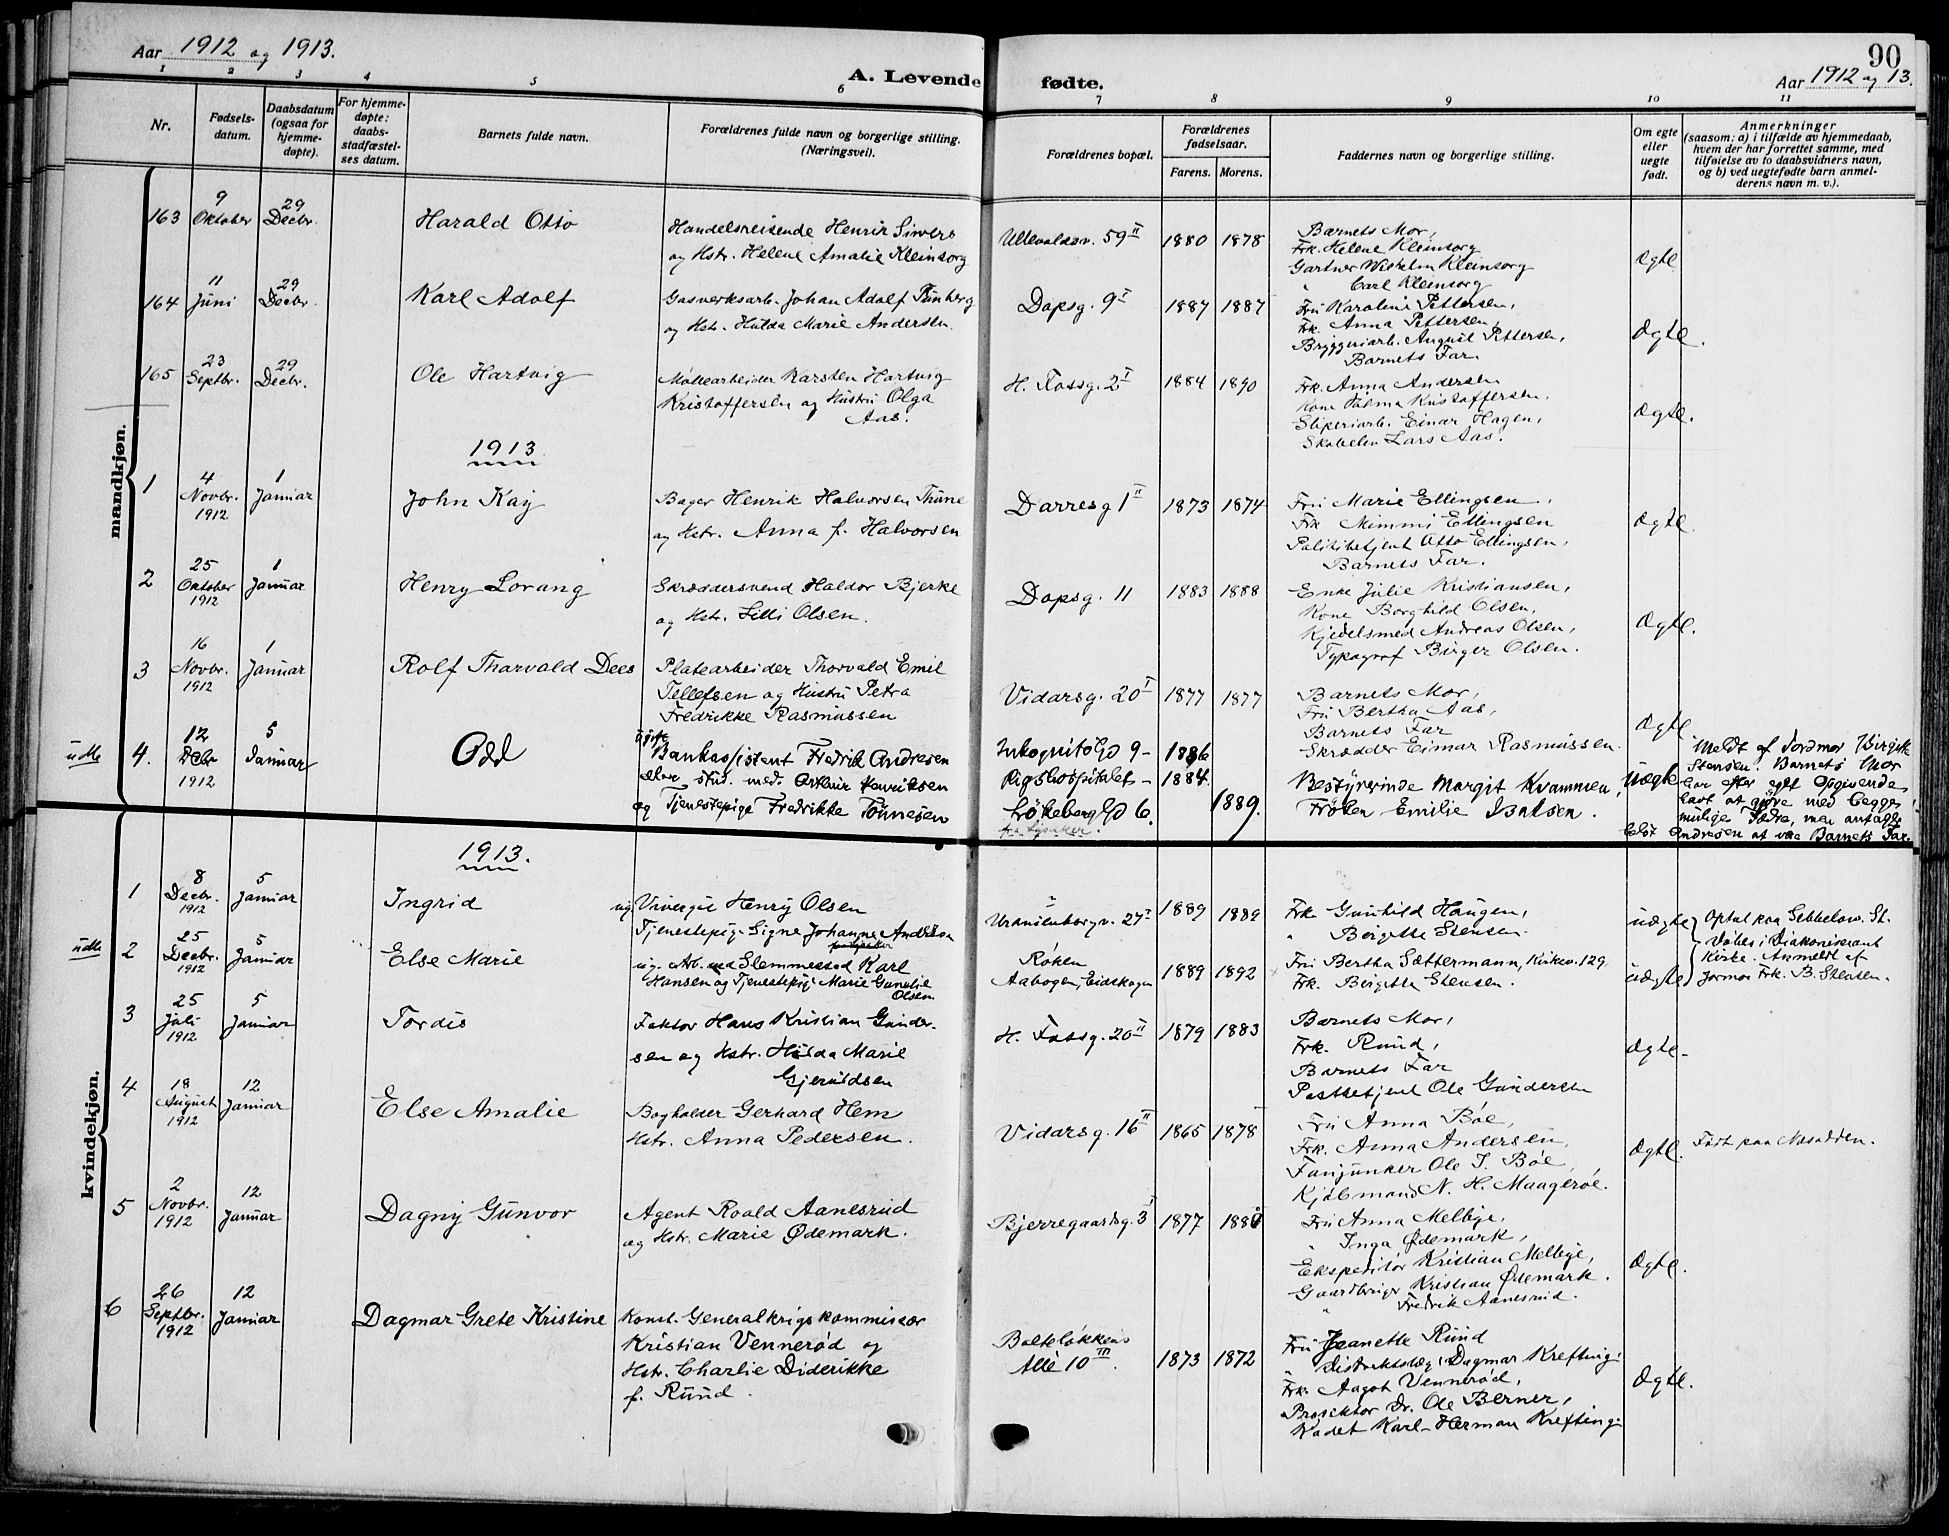 Aar 1912 og 1913.
A. Levende fødte.
90
Aar 1912 og 13.
1 2 3 4 5 6 7 8 9 10 11
Nr.
Fødsels-
datum.
Daabsdatum
(ogsaa for
hjemme-
døpte).
For hjemme-
døpte:
daabs-
stadfæstel-
ses datum.
Barnets fulde navn.
Forældrenes fulde navn og borgerlige stilling.
(Næringsvei).
Forældrenes bopæl.
Forældrenes
fødselsaar.
Farens. Morens.
Faddernes navn og borgerlige stilling.
Om egte
eller
uegte
født.
Anmerkninger
(saasom: a) i tilfælde av hjemmedaab,
hvem der har forrettet samme, med
tilføielse av to daabsvidners navn,
og b) ved uegtefødte barn anmel-
derens navn m. v.).
mandkjøn.
163
9
Oktober
29
Decbr.
Harald Otto
Handelsreisende Henrik Sivers
og Hstr. Helene Amalie Kleinsorg
Ullevoldsv. 59 II
1880 1878
Barnets Mor,
Frk. Helene Kleinsorg
Gartner Wilhelm Kleinsorg
" Carl Kleinsorg
Ægte
164
11
Juni
29
Decbr.
Karl Adolf
Gasverksarb. Johan Adolf Thinberg
og Hstr. Hulda Marie Andersen.
Dopsg. 9 I
1887 1887
Fru Karoline Pettersen,
Frk. Anna Pettersen,
Bryggeriarb. August Pettersen,
Barnets Far.
Ægte.
165
23
Septbr.
29
Decbr.
Ole Hartvig
Møllearbeider Karsten Hartvig
Kristoffersen og Hustru Olga
Aas.
H. Fossg. 2 I
1884 1890
Frk. Anna Andersen
Kone Palma Kristoffersen,
Sliperiarb. Einar Hagen,
Lars Aas.
Ægte.
1913
1
4
Novbr.
1912
1
Januar
John Kay
Bager Henrik Halvorsen Thune
og Hstr. Anna f. Halvorsen
Darresg 1 II
1873 1874
Fru Marie Ellingsen,
Frk Mimmi Ellingsen
Politibetjent Otto Ellingsen,
Barnets Far.
Ægte
2
25
Oktober
1912
1
Januar
Henry Lorang
Skræddersvend Haldor Bjerke
og Hstr. Lilli Olsen.
Dopsg. 11
1883 1888
Enke Julie Kristiansen,
Kone Borghild Olsen,
Kjedelsmed Andreas Olsen,
Typograf Birger Olsen.
Ægte.
3
16
Novbr.
1912
1
Januar
Rolf Thorvald Dees
Platearbeider Thorvald Emil
Tellefsen og Hustru Petra
Fredrikke Rasmussen
Vidarsg. 20 I
1877 1877
Barnets Mor,
Fru Bertha Aas,
Barnets Far
Skrædder Einar Rasmussen.
Ægte
udb
4.
12
Decbr
1912
5
Januar
Odd
ugifte
Bankassistent Fredrik Andresen
eller stud. med. Arthur Henriksen
og Tjenestepige Fredrikke Tønnesen
Inkognito Gd 9 -
Rigshospitalet -
Løkeberg Gd 6.
1886
1884
1889.
Bestyrerinde Margit Kvammen,
Frøken Emilie Isaksen.
Uægte
Meldt af Jordmor Birgitte
Stensen. Barnets Mor
har efter eget Opgivende
havt at gjøre med begge
mulige Fædre, men antages
helst Andresen at være Barnets Far.
kvindekjøn.
1913.
1
8
Decbr.
1912
5
Januar
Ingrid
ug Visergut Henry Olsen
Tjenestepig. Signe Johanne Andersen
"
Uranienborgv. 27 I
1889 1889
Frk Gunhild Haugen,
" Birgitte Stensen.
uægte
Optat paa Sebbelow. St.
Døbes i Diakonissernes
Kirke. Anmeldt af
Jormor Frk. B. Stensen.
udb
2
25
Decbr.
1912
5
Januar
Else Marie
ug. Arb. ved Slemmestad Karl
Hansen og Tjenestepig Marie Gunelie
Olsen
Røken
Aabogen, Eidskogen
1889 1892
Fru Bertha Sættermann, Kirkev. 129
Frk. Birgitte Stensen.
uægte
3
25
Juli
1912
5
Januar
Tordis
Faktor Hans Kristian Gunder-
sen og Hstr. Hilda Marie
Gjeruldsen
H. Fossg. 20 II
1879 1883
Barnets Mor,
Frk. Ruud,
Barnets Far
Postbetjent Ole Gundersen
Ægte
4
18
August
1912
12
Januar
Else Amalie
Bogholder Gerhard Hem
Hstr. Anna Pedersen.
Vidarsg. 16 II
1865 1878
Fru Anna Bøe,
Frk. Anna Andersen,
Fanjunker Ole J. Bøe,
Kjøbmand N. H. Maagerøe.
Ægte.
Født paa Nesodden.
5
2
Novbr.
1912
12
Januar
Dagny Gunvor
Agent Roald Aanesrud
og Hstr. Marie Ødemark.
Bjerregaardsg. 3 I
1877 1880
Fru Anna Melbye,
" Inga Ødemark,
Ekspeditør Kristian Melbye,
Gaardbruger Kristian Ødemark.
" Fredrik Aanesrud.
Ægte.
6
26
Septbr.
1912
12
Januar
Dagmar Grete Kristine
Konst. Generalkrigskommissær
Kristian Vennerød og
Hstr. Charlie Diderikke
f. Ruud.
Bolteløkkens
Allé 10 III.
1873 1872
Fru Jeanette Ruud
" Distriktslæg. Dagmar Krefting.
Frk. Aagot Vennerød,
Prosektor Dr. Ole Berner,
Kadet Karl Herman Krefting.
Ægte.